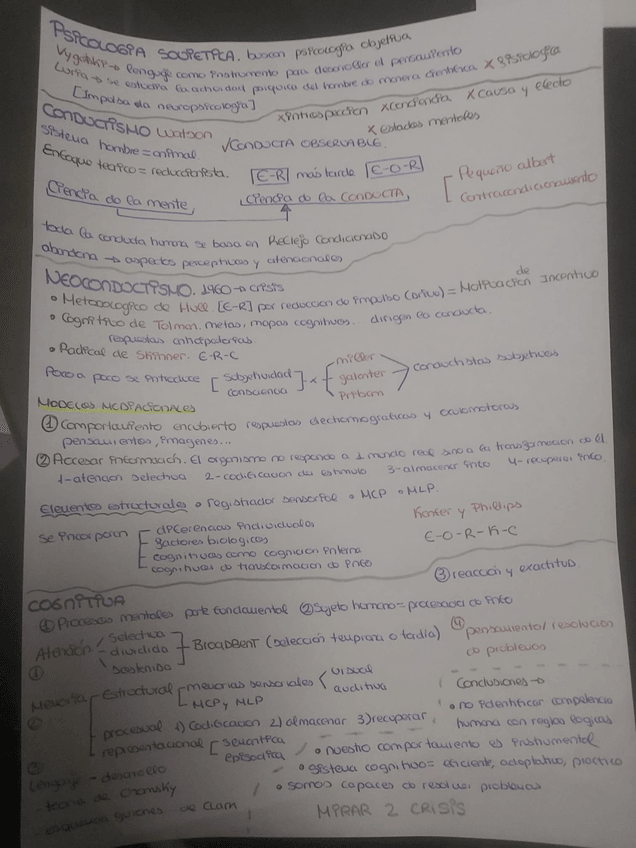 PSICOLOGIA SOVIETICA. buscan psicología objetiva
Vygotski → lenguaje como instrumento para desarrollar el pensamiento
Luria → se estudia la actividad psíquica del hombre de manera científica x fisiología
[Impulsa la neuropsicología]
x introspección x conciencia x causa y efecto
CONDUCTISMO Watson
✓CONDUCTA OBSERVABLE.
x estados mentales
Sistema hombre = animal
Enfoque teórico = reduccionista. [E-R] más tarde [E-O-R]
[Pequeño albert
Contracondicionamiento
Ciencia de la mente, Ciencia de la CONDUCTA,
toda la conducta humana se basa en Reflejo Condicionado
abandona → aspectos perceptivos y atencionales
NEOCONDUCTISMO. 1960 → crisis
• Metodologico de Hull [E-R] por reducción de impulso (drive) = Motivación de Incentivo
• Cognitivo de Tolman. metas, mapas cognitivos. dirigen la conducta.
respuestas anticipatorias
• Radical de Skinner. E-R-C
Poco a poco se introduce [subjetividad consciencia] x {miller galanter Pribram > conductistas subjetivos
MODELOS MEDIACIONALES
① Comportamiento encubierto respuestas electromiograficas y oculomotoras
pensamientos, imagenes...
② Accesar información. El organismo no responde a 1 mundo real sino a la transformacion de él
1-atencion selectiva 2-codificacion del estimulo 3-almacenar info 4-recuperar info.
Elementos estructurales • registrador sensorial • MCP • MLP.
Kanfer y Phillips
E-O-R-K-C
se incorporan [diferencias individuales
factores biologicos
cognitivas como cognicion interna
cognitivas de transformacion de info
③ reacción y exactitud.
COGNITIVA
① Procesos mentales parte fundamental ② Sujeto humano = procesador de info
④ pensamiento/resolucion
de problemas
Atención / selectiva
dividida
sostenida ] BROADBENT (selección temprana o tardía)
①
Memoria [Estructural [memorias sensoriales < visual
auditiva
MCP y MLP
②
procesual 1) codificacion 2) almacenar 3) recuperar
representacional [semantica
episodica
③
Lenguaje - desarrollo
teoria de Chomsky
esquemas guiones de
Conclusiones →
• no identificar competencia
humana con reglas logicas
• nuestro comportamiento es instrumental
• sistema cognitivo = eficiente, adaptativo, practico
• somos capaces de resolver problemas
MIRAR 2 CRISIS